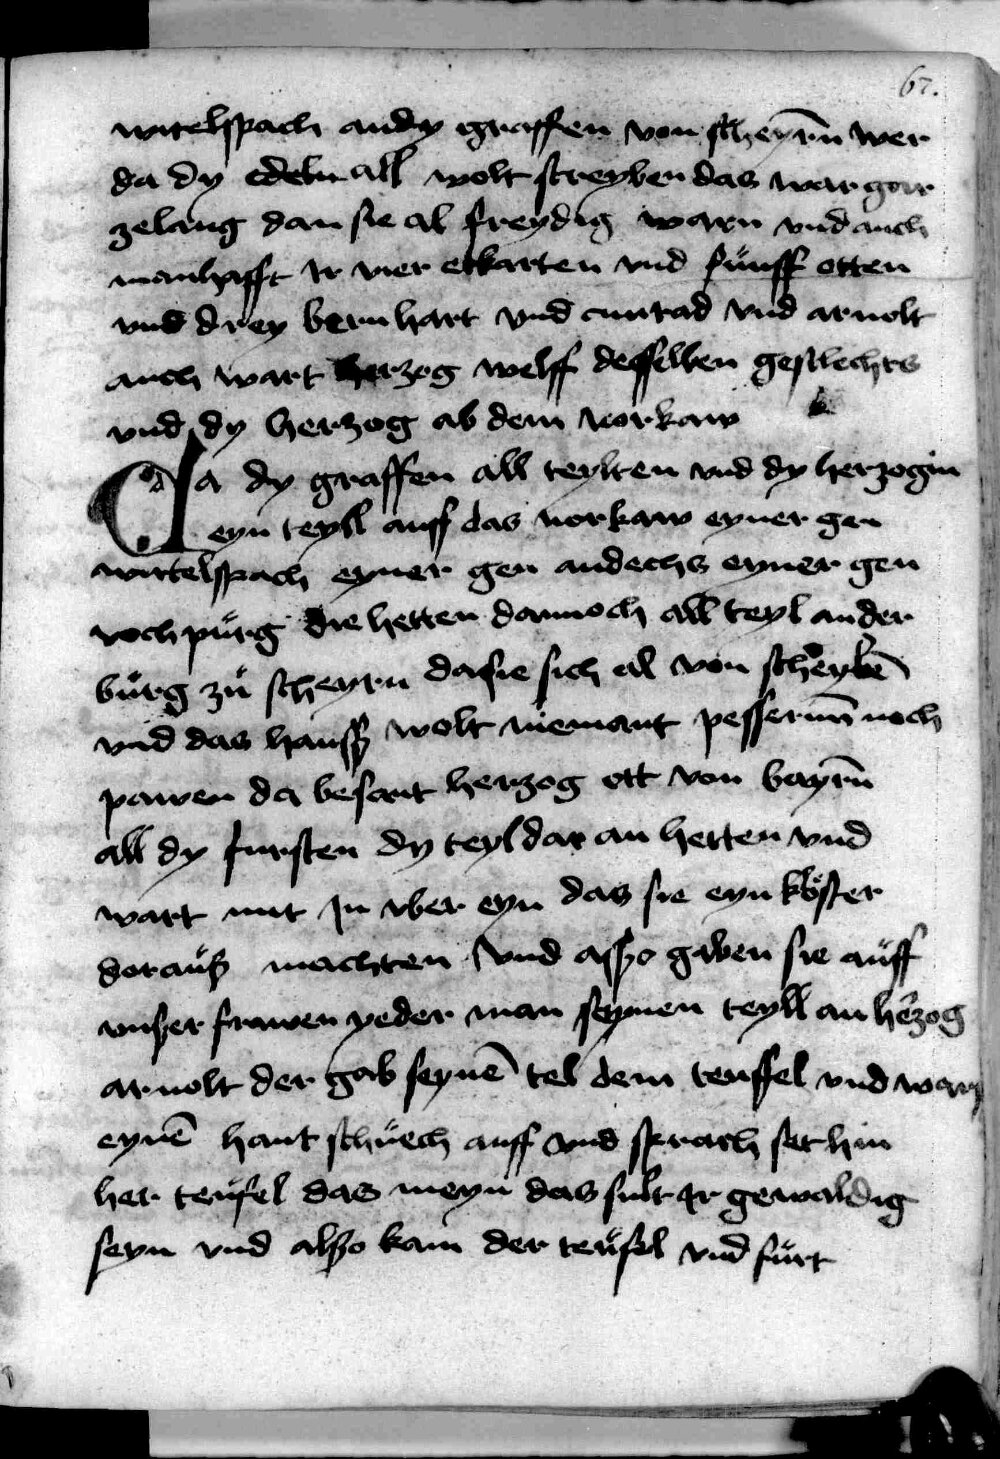 67.
witelspach an dy graffen von scheyrn̄ wer
da dy edeln all wolt screyben das war gar
zelang dan sie al freydig warn vnd auch
manhafft Ir vier ekkarten vnd fünff otten
vnd drey bernhart vnd cunrad vnd arnolt
auch wart herzog welff desselben geslechts
vnd dy herzog ab dem norkaw
Da dy graffen all teylten vnd dy herzogin
eyn teyll auff das norkaw eyner gen
wittelspach eyner gen andechs eyner gen
voch pürg die hetten dannoch all teyl an der
bürg zü scheyrn da sie sich al von schreybē
vnd das hauss wolt niemant pessernn̄ noch
pawen da besant herzog ott von bayrn̄
all dy fursten dy teyl dar an hetten vnd
wart mit In vber eyn das sie eyn kloster
dorauß machten Vnd also gaben sie auff
vnßer frawen yeder man seynen teyll an herzog
arnolt der gab seynē tel dem teuffel vnd warff
eynē hantschüech auff vnd sprach set hin
her teüfel das meyn das sult Ir gewaldig
seyn vnd also kam der teüfel vnd fürt